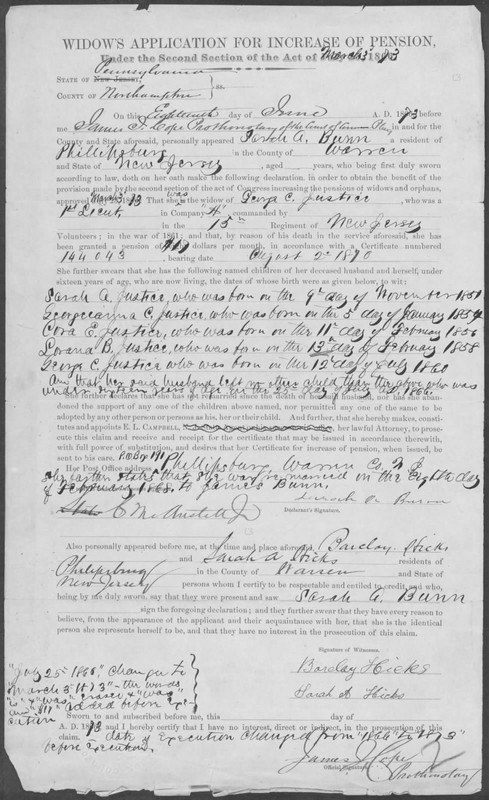 WIDOW'S APPLICATION FOR INCREASE OF PENSION,
Under the Second Section of the Act of March 3 1873
Pennsylvania
STATE OF NEW JERSEY,
COUNTY OF Northampton } ss.
On this Eighteenth day of June A. D. 1873 before
me, James J. Cope Prothonotary of the Court of Common Pleas in and for the
County and State aforesaid, personally appeared Sarah A. Bunn a resident of
Phillipsburg in the County of Warren
and State of New Jersey, aged years, who being first duly sworn
according to law, doth on oath make the following declaration, in order to obtain the benefit of the
provision made by the second section of the act of Congress increasing the pensions of widows and orphans,
approved March 3, 73 That she was the widow of George C. Justice, who was a
1st Lieut in Company "H" commanded by
in the 15th Regiment of New Jersey
Volunteers; in the war of 1861; and that, by reason of his death in the service aforesaid, she has
been granted a pension of $ dollars per month, in accordance with a Certificate numbered
144043, bearing date August 2d 1870
She further swears that she has the following named children of her deceased husband and herself, under
sixteen years of age, who are now living, the dates of whose birth were as given below, to wit:
Sarah A. Justice, who was born on the 9th day of November 1851
Georgeanna C. Justice, who was born on the 5th day of January 1854
Cora E. Justice, who was born on the 11th day of February 1856
Lorana B. Justice, who was born on the 13th day of February 1858
George C. Justice who was born on the 12th day of July 1860
And that her said husband left no other child than the above who was
under sixteen years of age on the 25th day of July A.D. 1866.
She further declares that she has remarried since the death of her said husband, nor has she abandoned
the support of any one of the children above named, nor permitted any one of the same to be
adopted by any other person or persons as his, her or their child. And further, that she hereby makes, constitutes
and appoints E. L. CAMPBELL, her lawful Attorney, to prosecute
this claim and receive and receipt for the certificate that may be issued in accordance therewith,
with full power of substitution, and desires that her Certificate for increase of pension, when issued, be
sent to his care. P.O. Box 191
Her Post Office address is Phillipsburg, Warren Co. N. J.
She further states that she was remarried on the Eighth day
of February 1868 to James Bunn.
Sarah A Bunn
Declarant's Signature.
Also personally appeared before me, at the time and place aforesaid, Barclay Hicks
and Sarah A Hicks residents of
Phillipsburg in the County of Warren and State of
New Jersey persons whom I certify to be respectable and entitled to credit, and who,
being by me duly sworn, say that they were present and saw Sarah A. Bunn
sign the foregoing declaration; and they further swear that they have every reason to
believe, from the appearance of the applicant and their acquaintance with her, that she is the identical
person she represents herself to be, and that they have no interest in the prosecution of this claim.
Signature of Witnesses.
Barclay Hicks
Sarah A Hicks
"July 25th 1866" changed to
March 3 1873" - the words
"is" & "was" erased & "was"
and "191" added before execution
Sworn to and subscribed before me, this day of
A. D. 1873 and I certify that I have no interest, direct or indirect, in the prosecution of this
claim. date of Execution changed from "1866" to "1873"
before execution.
James J Cope
Official Signature.
Prothonotary